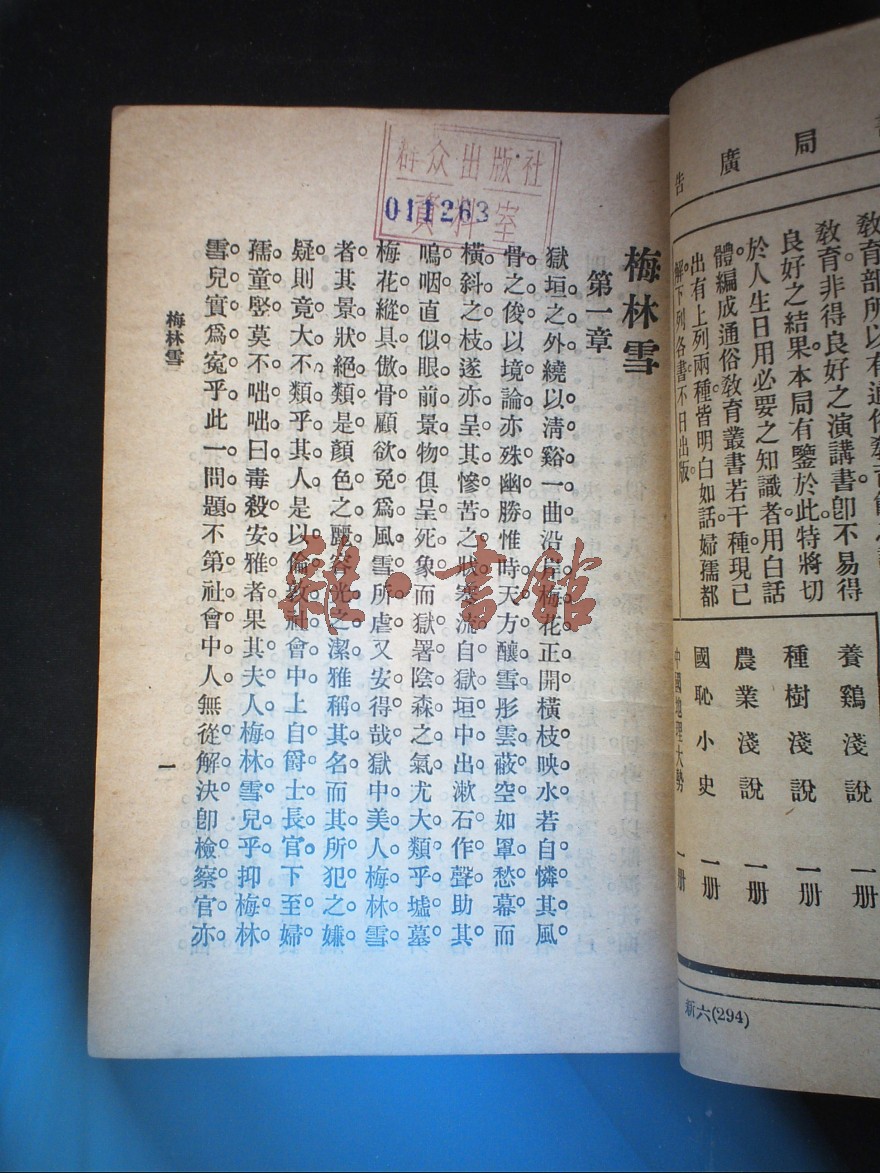 書局廣告
教育非得良好之演講書卽不易得
良好之結果本局有鑒於此特將切
於人生日用必要之知識者用白話
體編成通俗教育叢書若干種現已
出有上列兩種皆明白如話婦孺都
解下列各書不日出版
養鷄淺說 一册
種樹淺說 一册
農業淺說 一册
國恥小史 一册
中國地理大勢 一册
新六(294)
群众出版社
資料室
011263
梅林雪
第一章
獄垣之外繞以清谿一曲沿岸梅花正開橫枝映水若自憐其風
骨之俊以境論亦殊幽勝惟時天方釀雪彤雲蔽空如罩愁幕而
橫斜之枝遂亦呈其慘苦之狀寒流自獄垣中出漱石作聲助其
嗚咽直似眼前景物俱呈死象而獄署陰森之氣尤大類乎墟墓
梅花縱具傲骨顧欲免爲風雪所虐又安得哉獄中美人梅林雪
者其景狀絕類是顏色之麗容光之潔雅稱其名而其所犯之嫌
疑則竟大不類乎其人是以倫敦社會中上自爵士長官下至婦
孺童竪莫不咄咄曰毒殺安雅者果其夫人梅林雪兒乎抑梅林
雪兒實爲寃乎此一問題不第社會中人無從解決卽檢察官亦
梅林雪
一
雜·書館